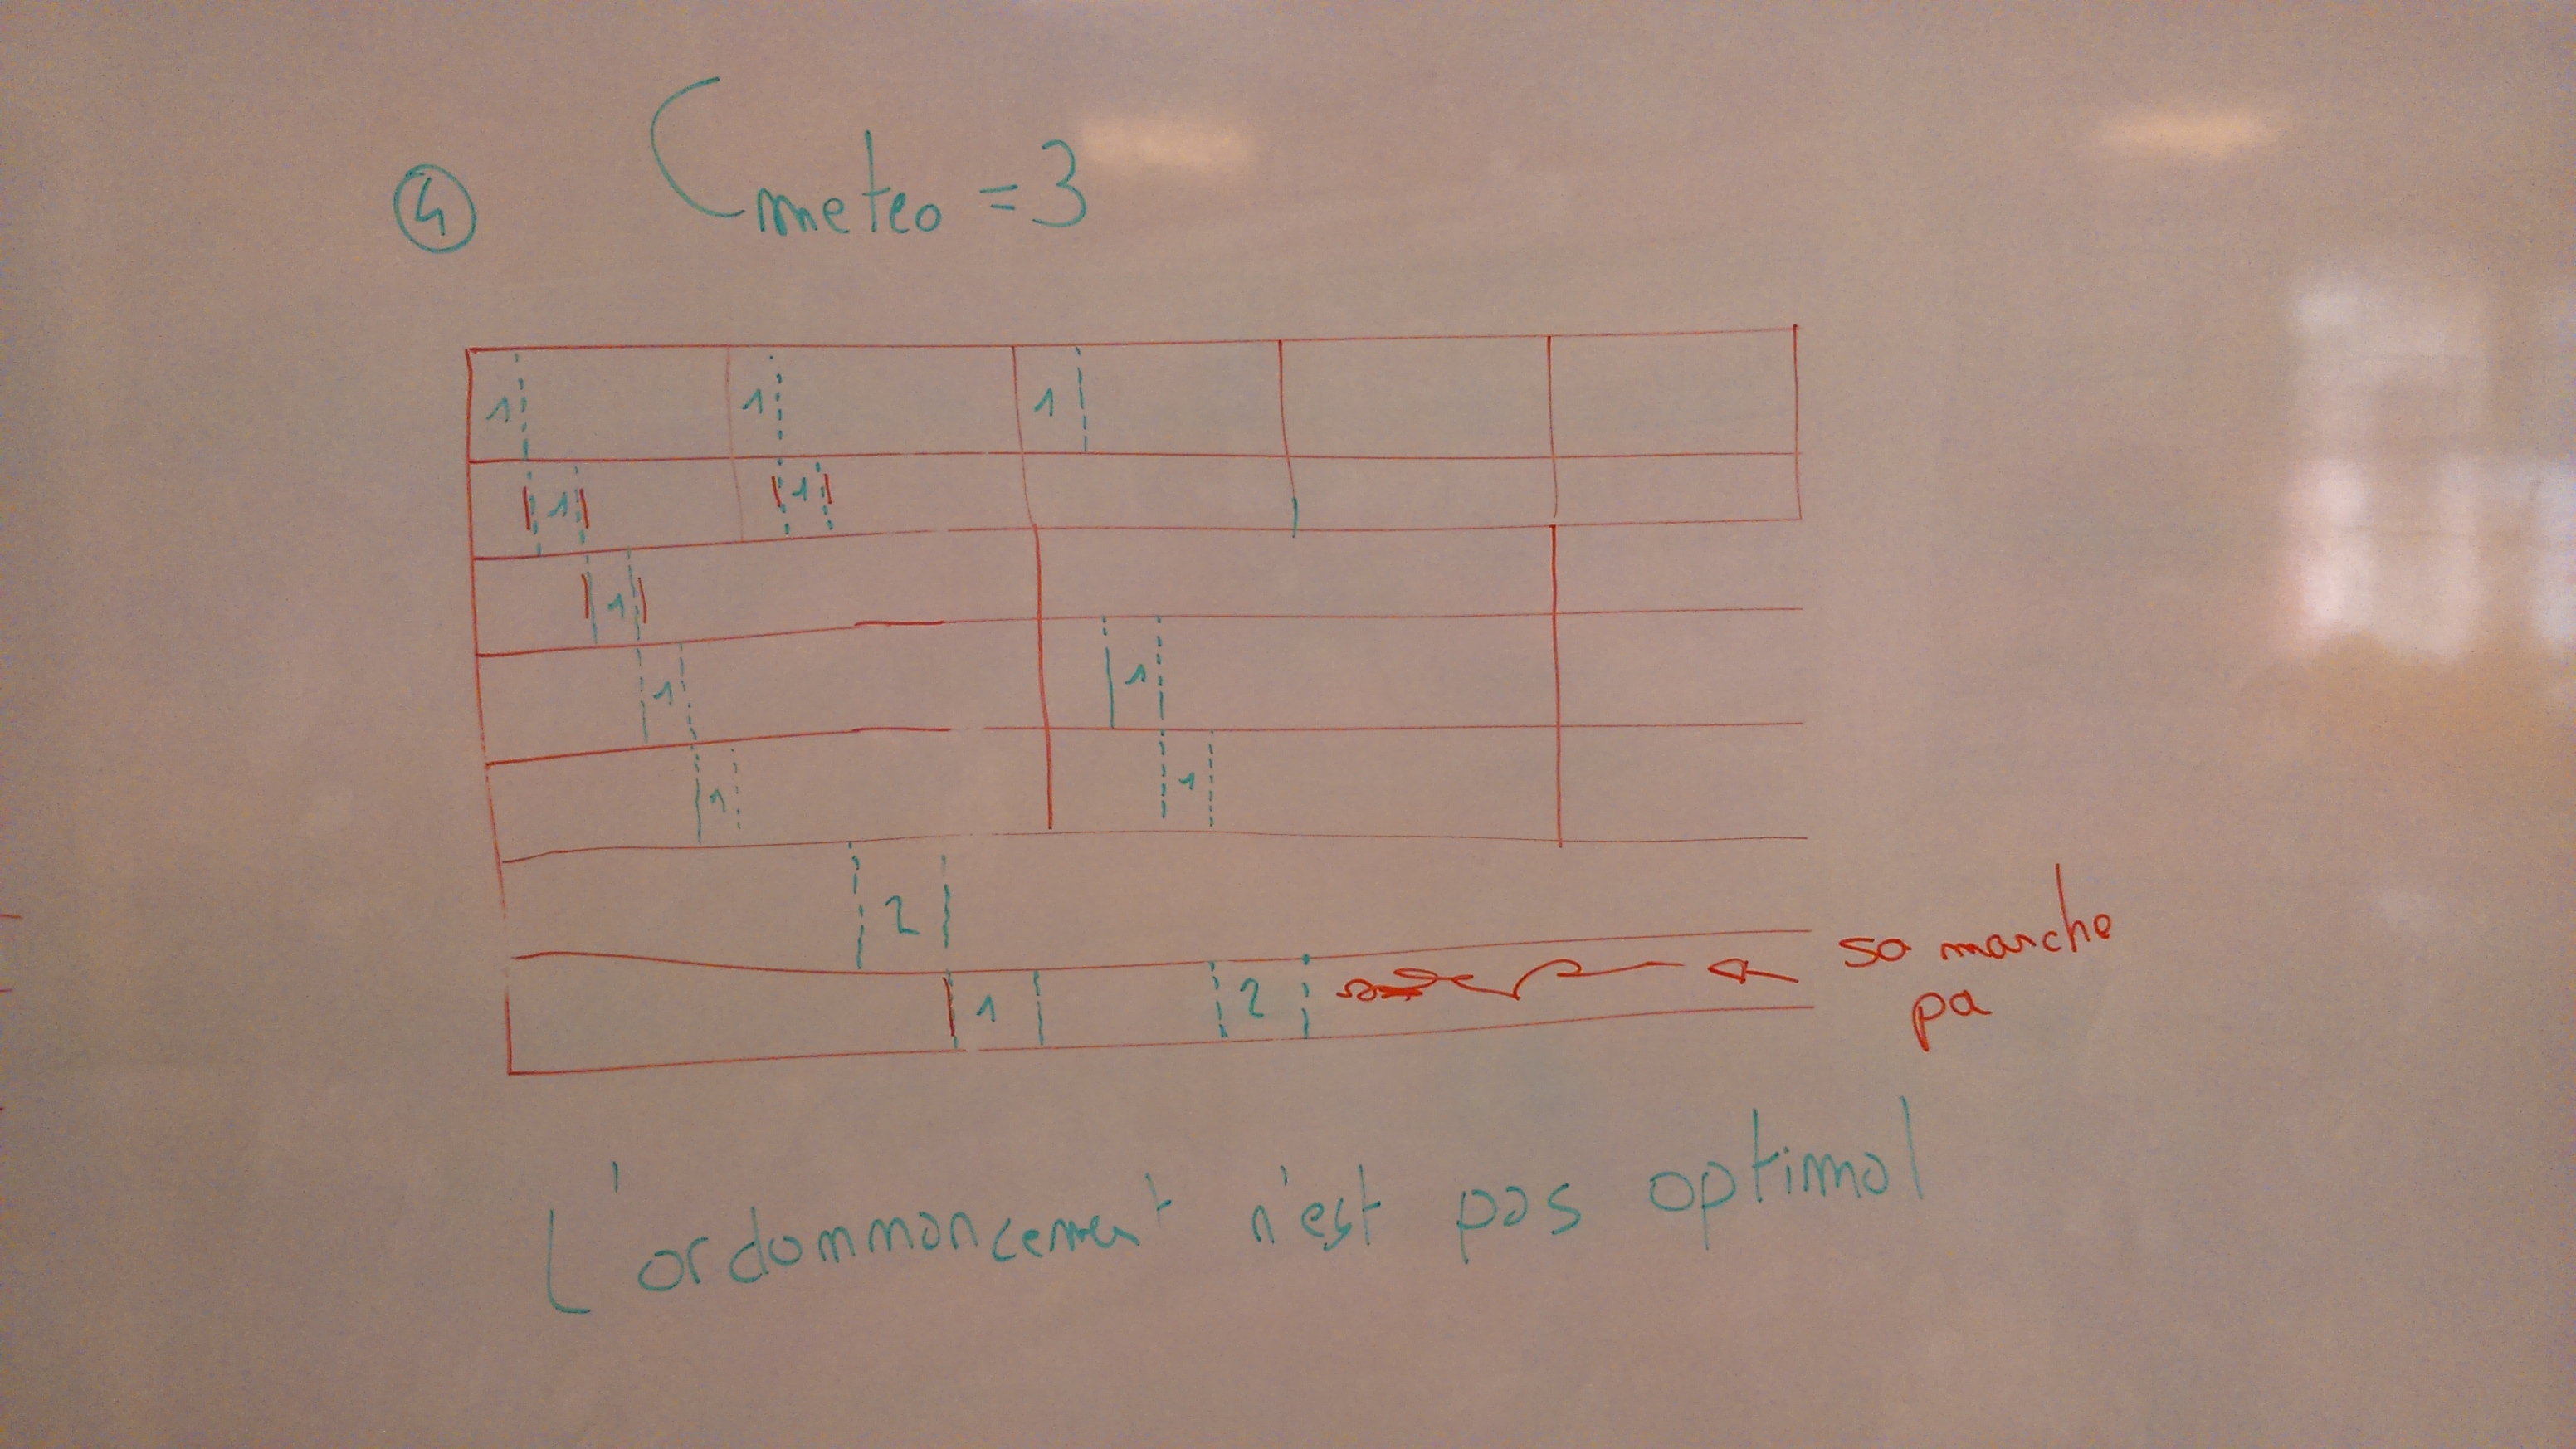 4 Cmeteo = 3
1 1 1
1 1
1
1 1
1 1
2
1 2 sa marche
pa
L'ordommancement n'est pas optimal